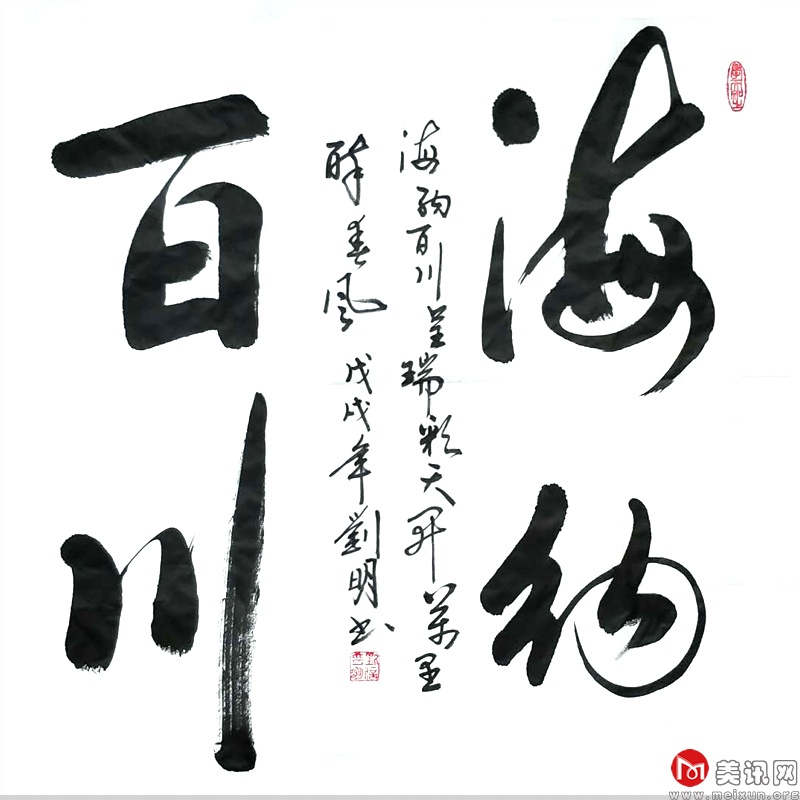 海纳
百川
海纳百川呈瑞彩天开万里
醉春風 戊戌年劉明书
美讯网
www.meixun.org